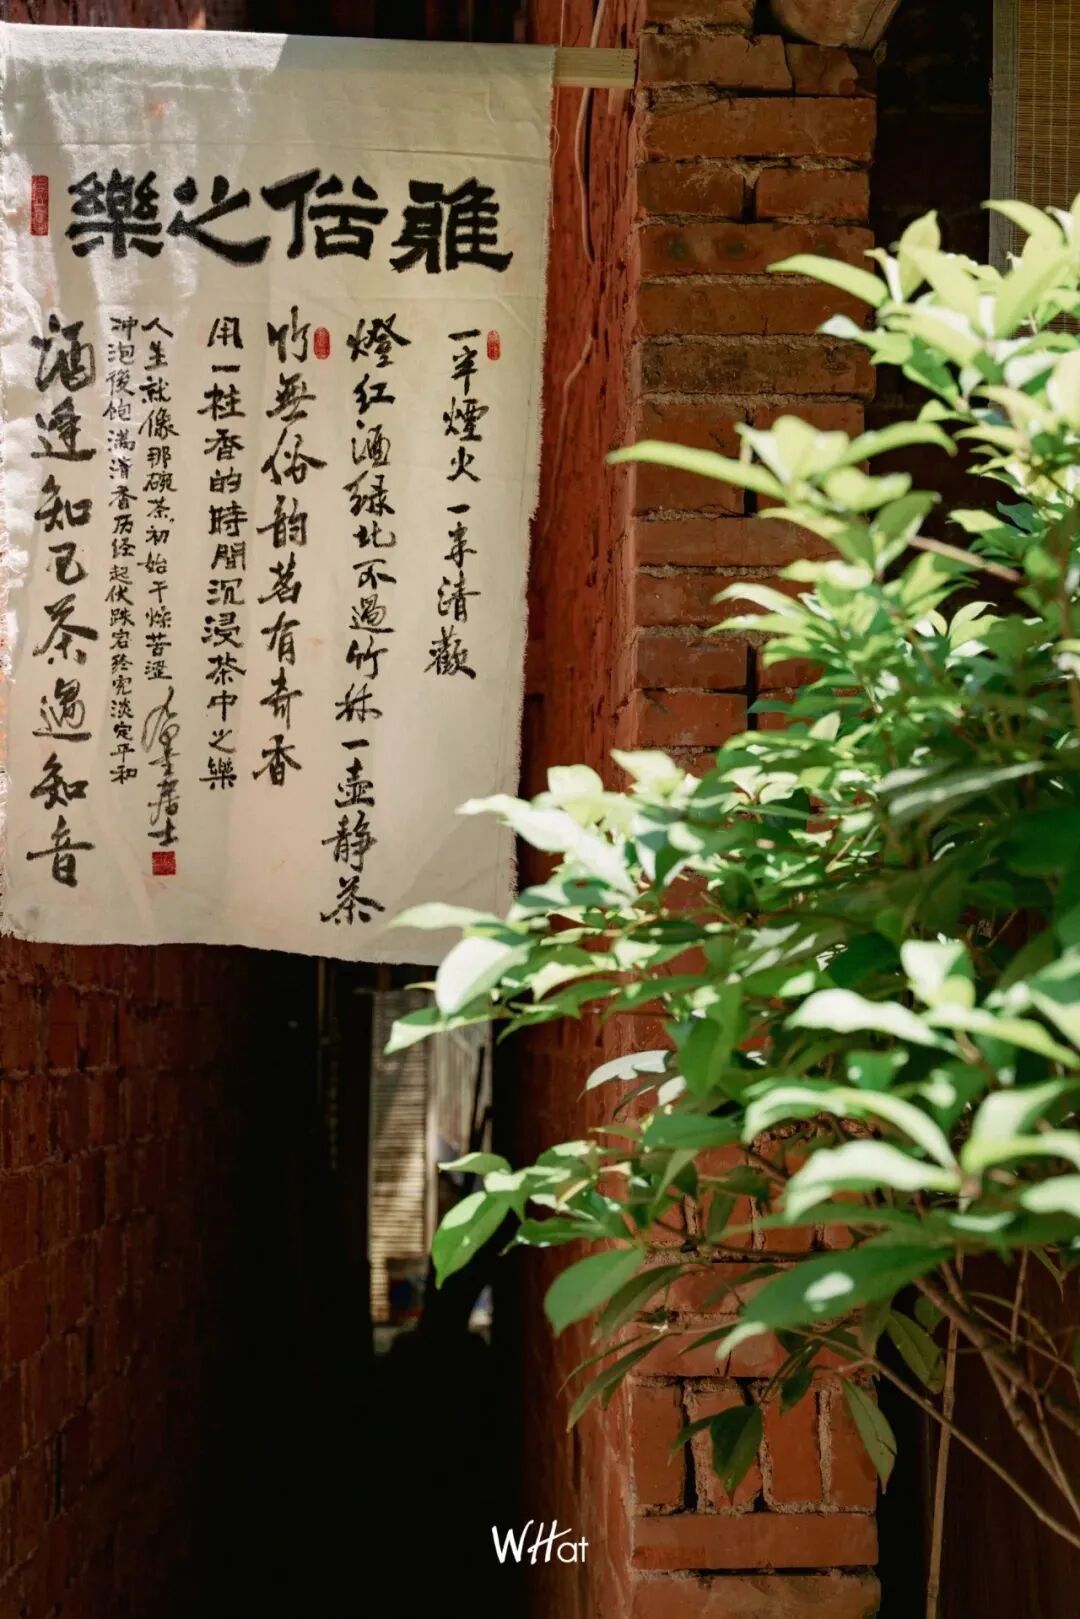 雅俗之樂
一半煙火一半清歡
燈紅酒绿比不過竹林一壺静茶
竹無俗韵茗有奇香
用一柱香的時間沉浸茶中之樂
人生就像那碗茶初始干燥苦涩
冲泡後饱满清香历经起伏跌宕终究淡定平和
居士
酒逢知己茶遇知音
WHat